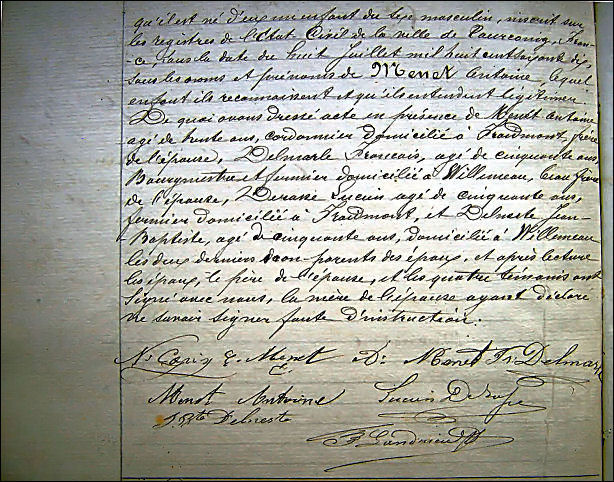 qu'il est né d'eux un enfant du sexe masculin, inscrit sur
les registres de l'Etat Civil de la ville de Tourcoing, Fran-
ce, sous la date du huit Juillet mil huit cent soixante dix,
sous les noms et prénoms de Menet Antoine, lequel
enfant ils reconnaissent et qu'ils entendent légitimer
De quoi avons dressé acte en présence de Menet Antoine
agé de trente ans, cordonnier domicilié à Froidmont, frère
de l'épouse, Delmarle François, agé de cinquante ans,
Bourgmestre et fermier domicilié à Willemeau, beau frère
de l'épouse, Lucien agé de cinquante ans,
fermier domicilié à Froidmont, et Delneste Jean
Baptiste, agé de cinquante ans, domicilié à Willemeau
les deux derniers non-parents des époux, et après lecture
les époux, le père de l'épouse, et les quatre témoins ont
signé avec nous, la mère de l'épouse ayant déclaré
ne savoir signer faute d'instruction.
Menet D. Menet Fs Delmarle
Menet Antoine Lucien
J Bte Delneste